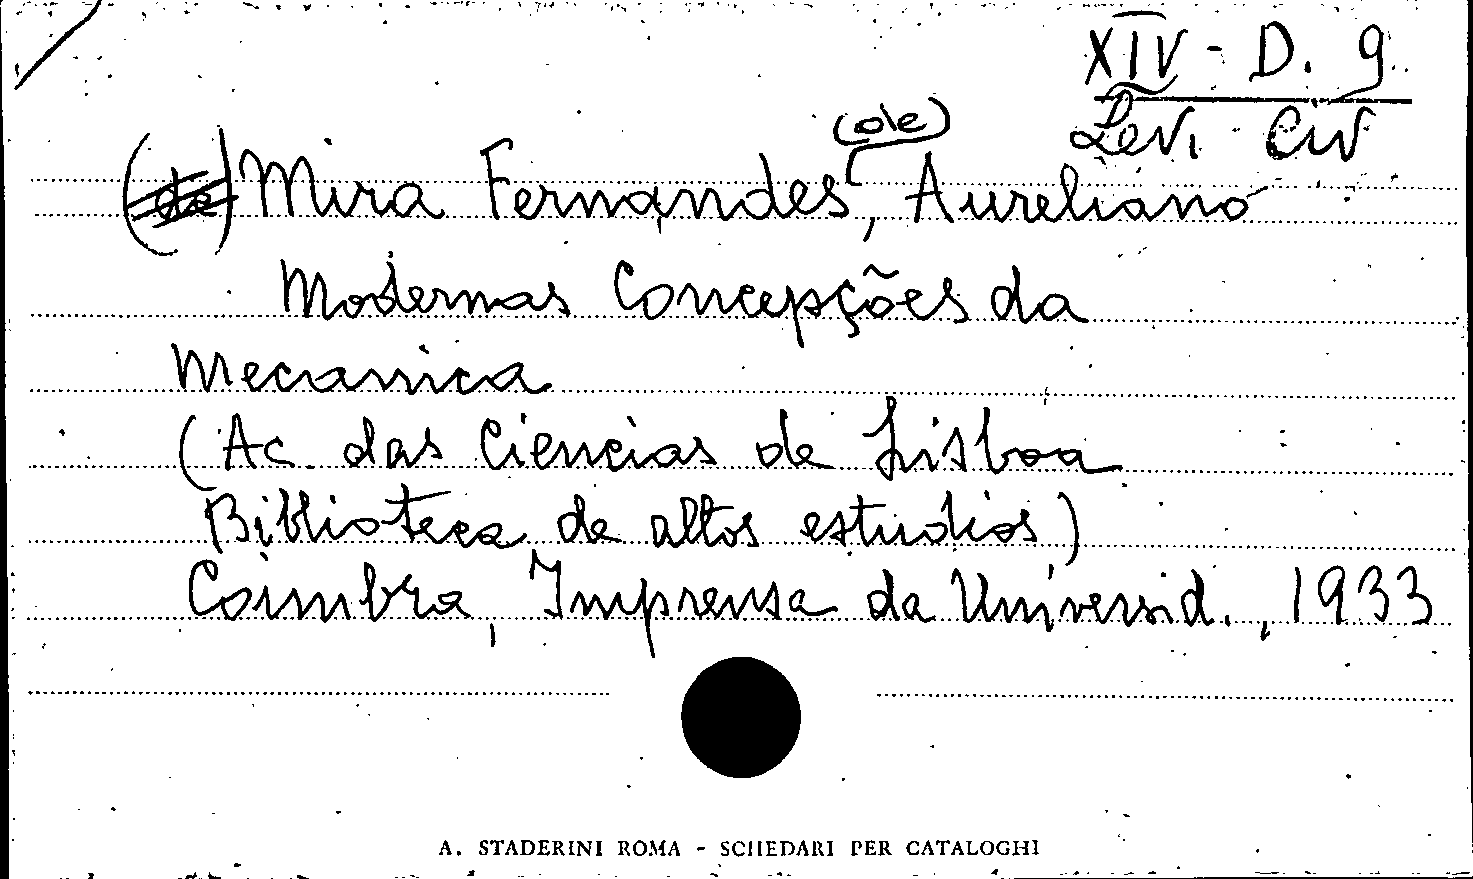 XIV - D. 9
Levi Civ
(de)
(de) Mira Fernandes, Aureliano
Modernas Concepções da
Mecanica
(Ac. das Ciencias de Lisboa
Biblioteca de altos estudios)
Coimbra, Imprensa da Universid., 1933
A. STADERINI ROMA - SCHEDARI PER CATALOGHI